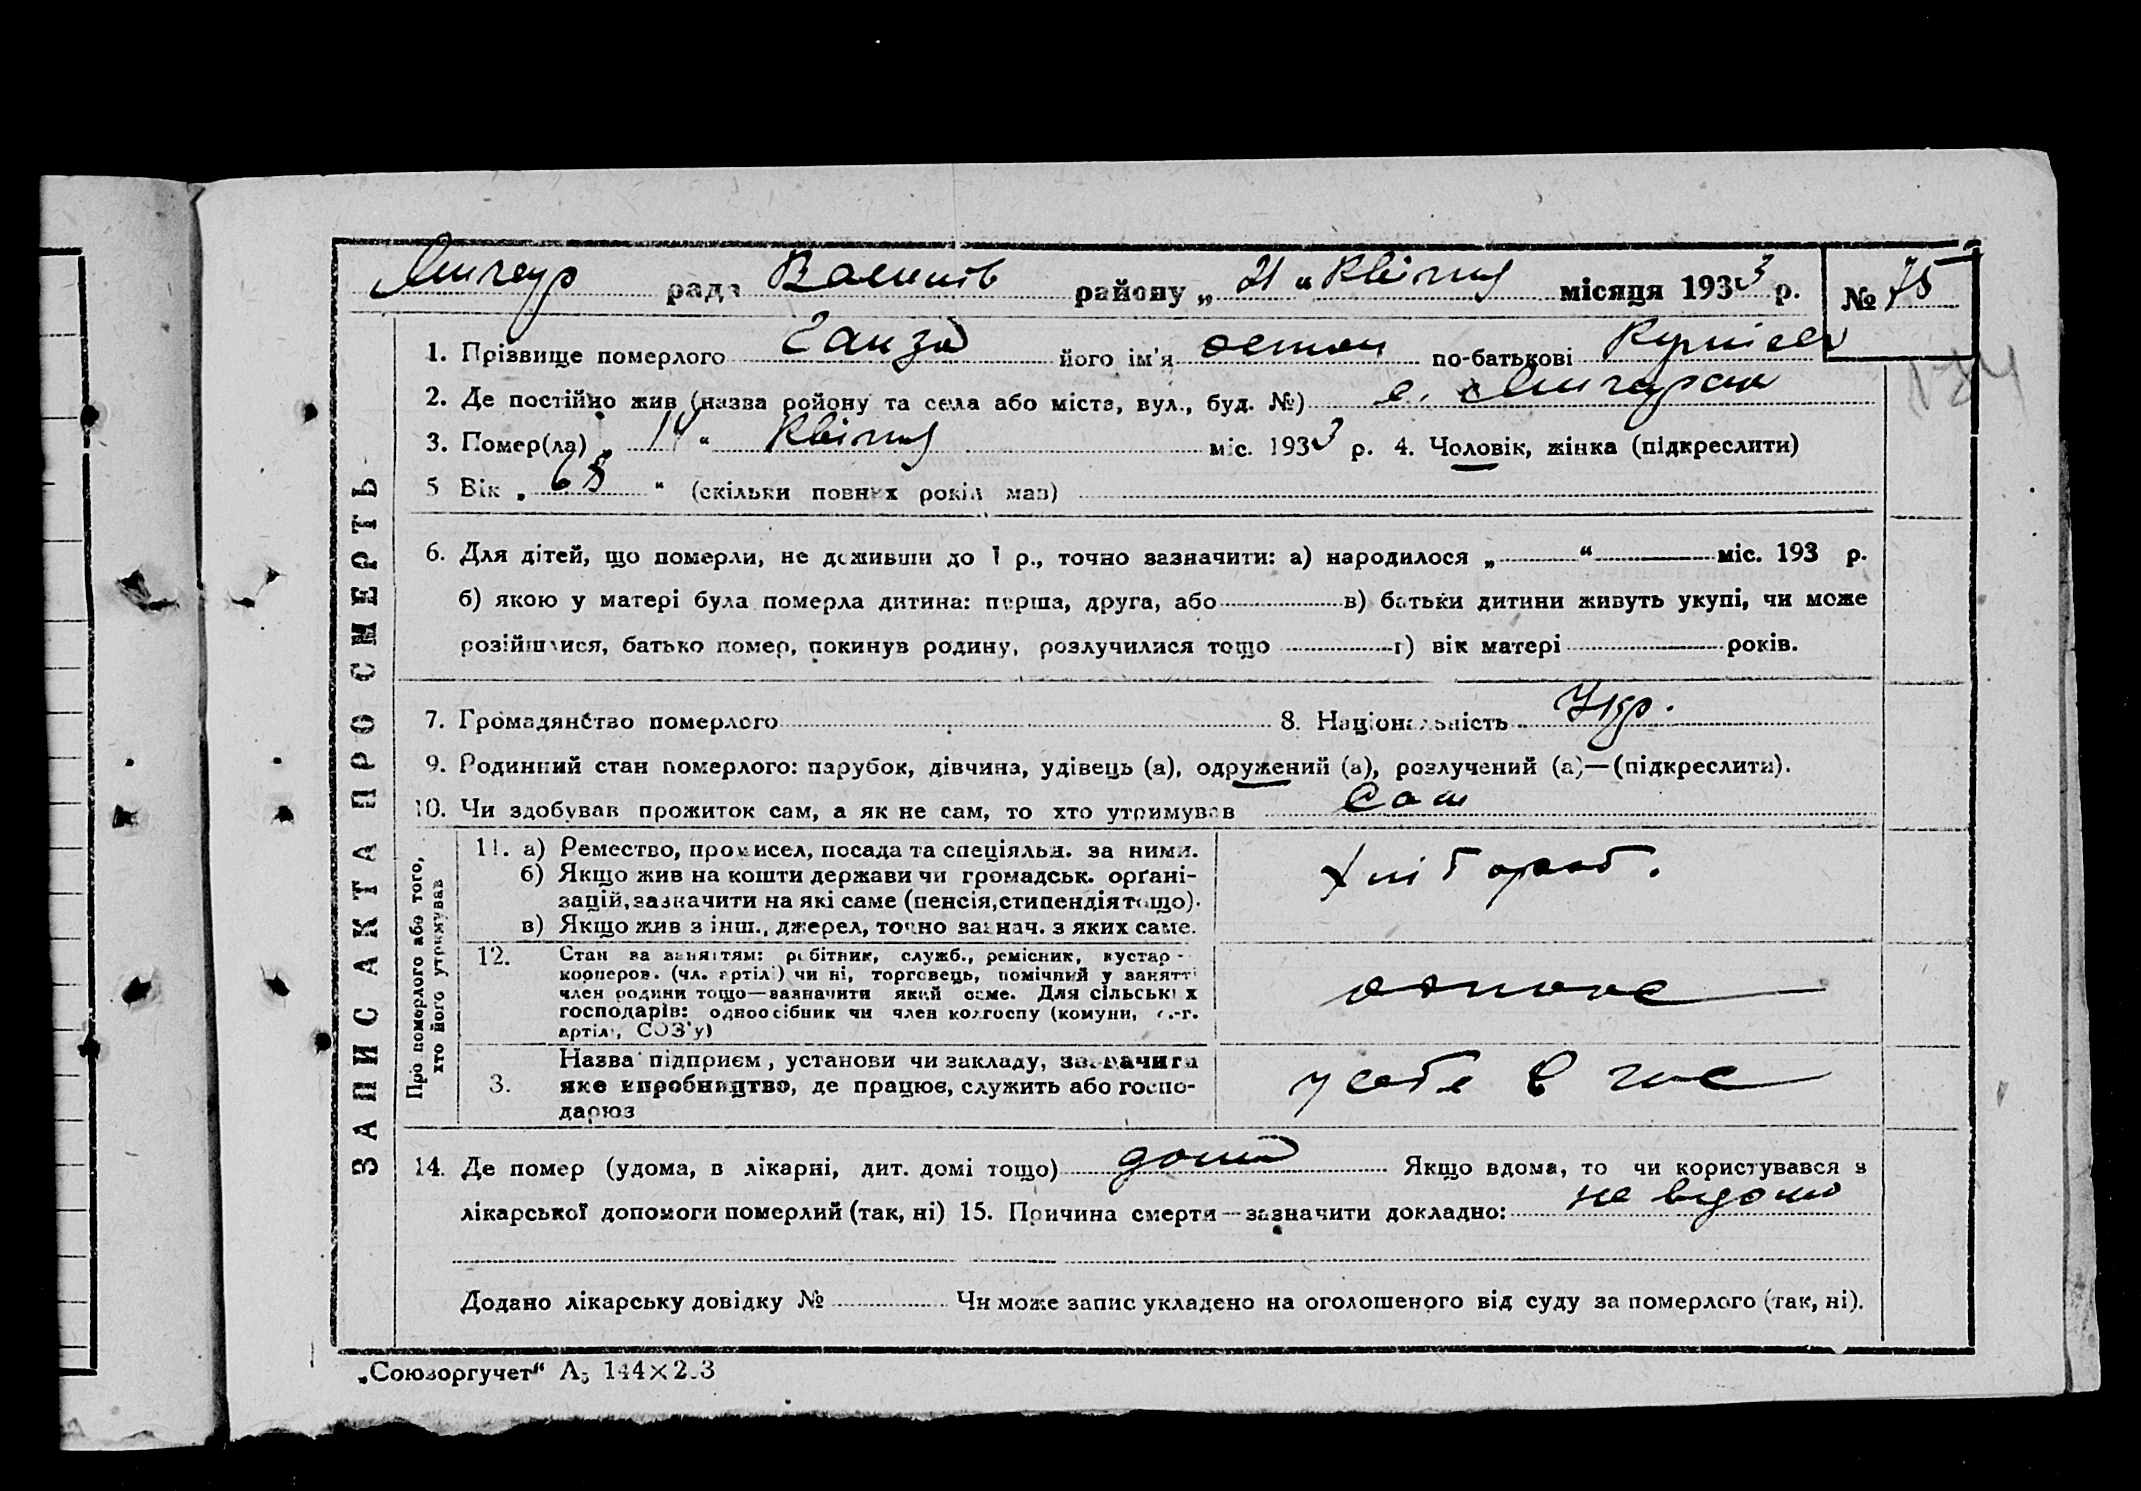 рада Васильків району „ 21 " квітня місяця 1933 р. № 75
1. Прізвище померлого Ганза його ім'я Остап по-батькові
2. Де постійно жив (назва району та села або міста, вул., буд. №) с.
3. Помер(ла) „ 14 " квітня міс. 1933 р. 4. Чоловік, жінка (підкреслити)
5 Вік „ 68 " (скільки повних років мав)
6. Для дітей, що померли, не доживши до 1 р., точно зазначити: а) народилося „ " міс. 193 р.
б) якою у матері була померла дитина: перша, друга, або в) батьки дитини живуть укупі, чи може
розійшлися, батько помер, покинув родину, розлучилися тощо г) вік матері років.
7. Громадянство померлого 8. Національність Укр.
9. Родинний стан померлого: парубок, дівчина, удівець (а), одружений (а), розлучений (а)—(підкреслити).
10. Чи здобував прожиток сам, а як не сам, то хто утримував Сам
ЗАПИС АКТА ПРО СМЕРТЬ
Про померлого або того,
хто його утримував
11. а) Ремество, промисел, посада та спеціяльн. за ними.
б) Якщо жив на кошти держави чи громадськ. орґані-
зацій, зазначити на які саме (пенсія, стипендія тощо).
в) Якщо жив з інш., джерел, точно зазнач. з яких саме.
хлібороб.
12. Стан за заняттям: робітник, служб., ремісник, кустар -
коопер​ов. (чл. артілі) чи ні, торговець, помічний у занятті
член родини тощо—зазначити який саме. Для сільських
господарів: одноосібник чи член колгоспу (комуни, с.-г.
артілі, СОЗ'у)
3. Назва підприєм, установи чи закладу, зазначити
яке виробництво, де працює, служить або госпо-
дарює
у себе в
14. Де помер (удома, в лікарні, дит. домі тощо) дома Якщо вдома, то чи користувався з
лікарської допомоги померлий (так, ні) 15. Причина смерти—зазначити докладно: не відомо
Додано лікарську довідку № Чи може запис укладено на оголошеного від суду за померлого (так, ні).
„Союзоргучет" А5 144×203